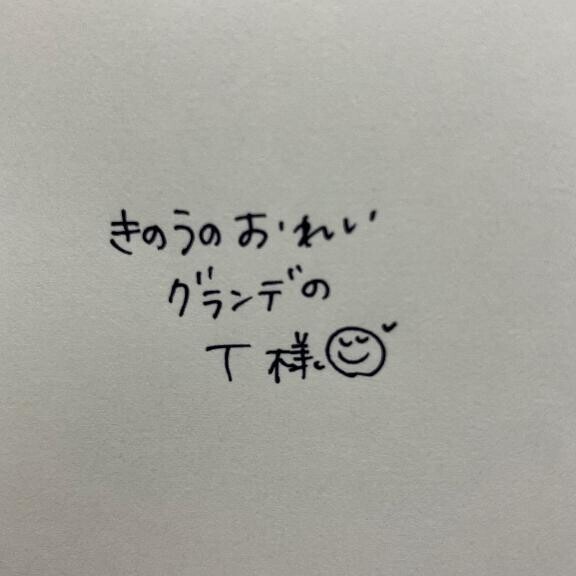 きのうのおれい
グランデの
T 様